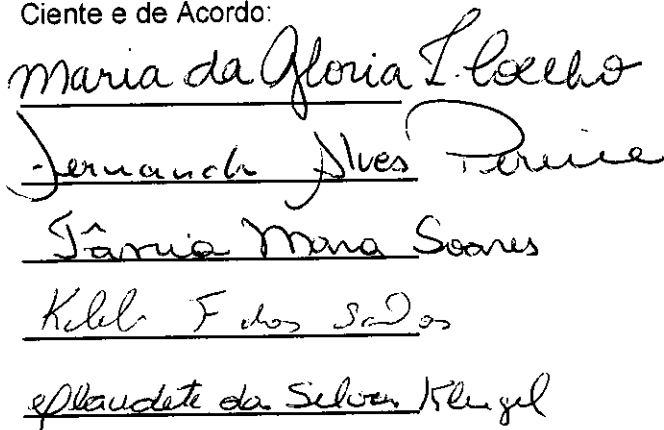 Ciente e de Acordo:
Maria da Gloria L. Coelho
Fernanda Alves Pereira
Tânia Mara Soares
F dos Santos
Claudete da Silva Klengel